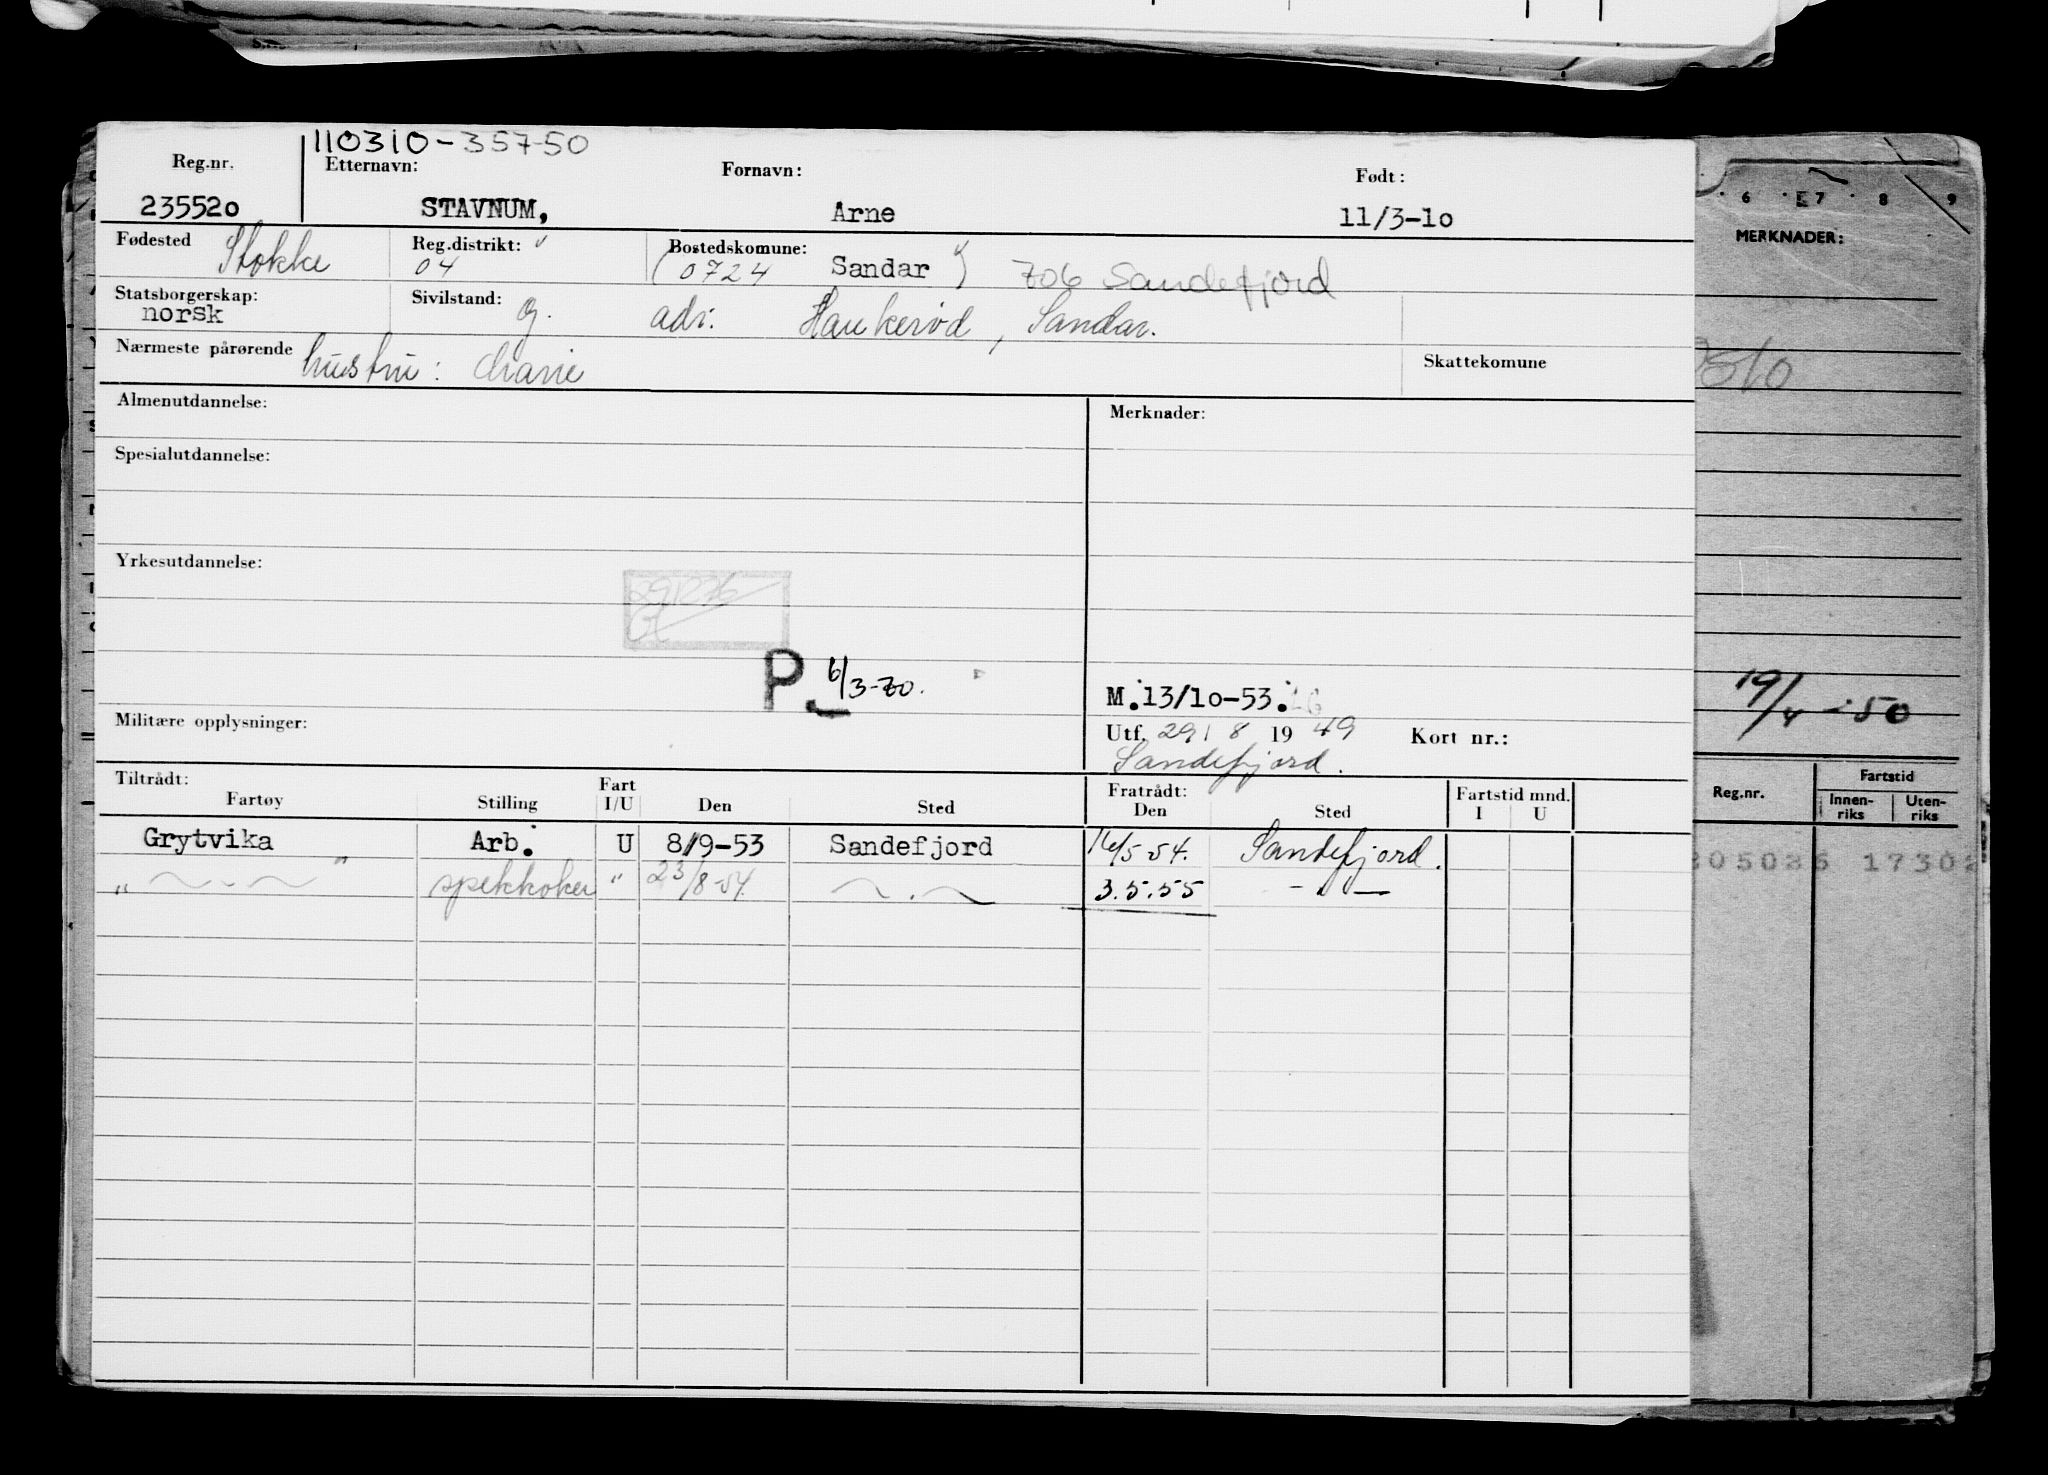 110310-35750
Reg.nr. Etternavn: Fornavn: Født:
235520 STAVNUM, Arne 11/3-10
Fødested Stokke Reg.distrikt: 04 Bostedskomune: (0724 Sandar) 706 Sandefjord
Statsborgerskap: norsk Sivilstand: g. adr: Haukerød, Sandar.
Nærmeste pårørende hustru: Marie Skattekomune
Almenutdannelse: Merknader:
Spesialutdannelse:
Yrkesutdannelse:
291276
P 6/3-70.
M.13/10-53.
Militære opplysninger: Utf. 29/8 1949 Kort nr.:
Sandefjord.
Tiltrådt: Fratrådt: Fartstid mnd.
Fartøy Stilling Fart I/U Den Sted Den Sted I U
Grytvika Arb. U 8/9-53 Sandefjord 16/5-54. Sandefjord.
" — " — spekkoker " 23/8-54. — . — 3.5.55 - " -
6 7 8 9
MERKNADER:
19/4-50
Reg.nr. Fartstid
Innen-riks Uten-riks
205026 17302